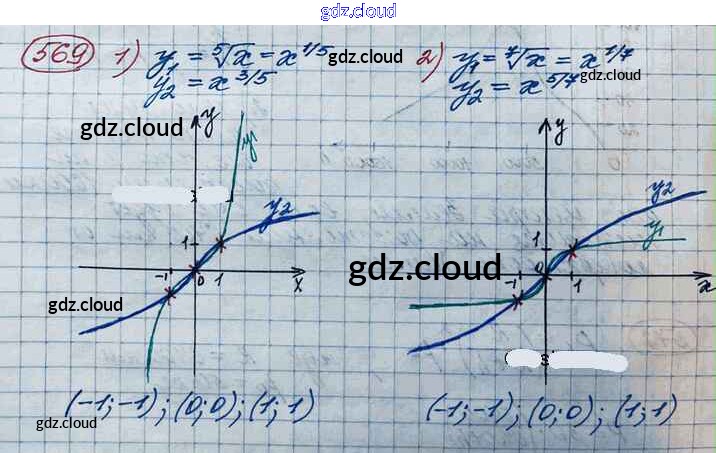 gdz.cloud
569 1) y₁ = ⁵√x = x^1/5 gdz.cloud 2) y₁ = ⁷√x = x^1/7
y₂ = x^3/5 y₂ = x^5/7 gdz.cloud
gdz.cloud y y₁ y
y₂ y₂
1 1 y₁
-1 0 1 x gdz.cloud -1 0 1 x
gdz.cloud
(-1; -1); (0; 0); (1; 1) (-1; -1); (0; 0); (1; 1)
gdz.cloud gdz.cloud